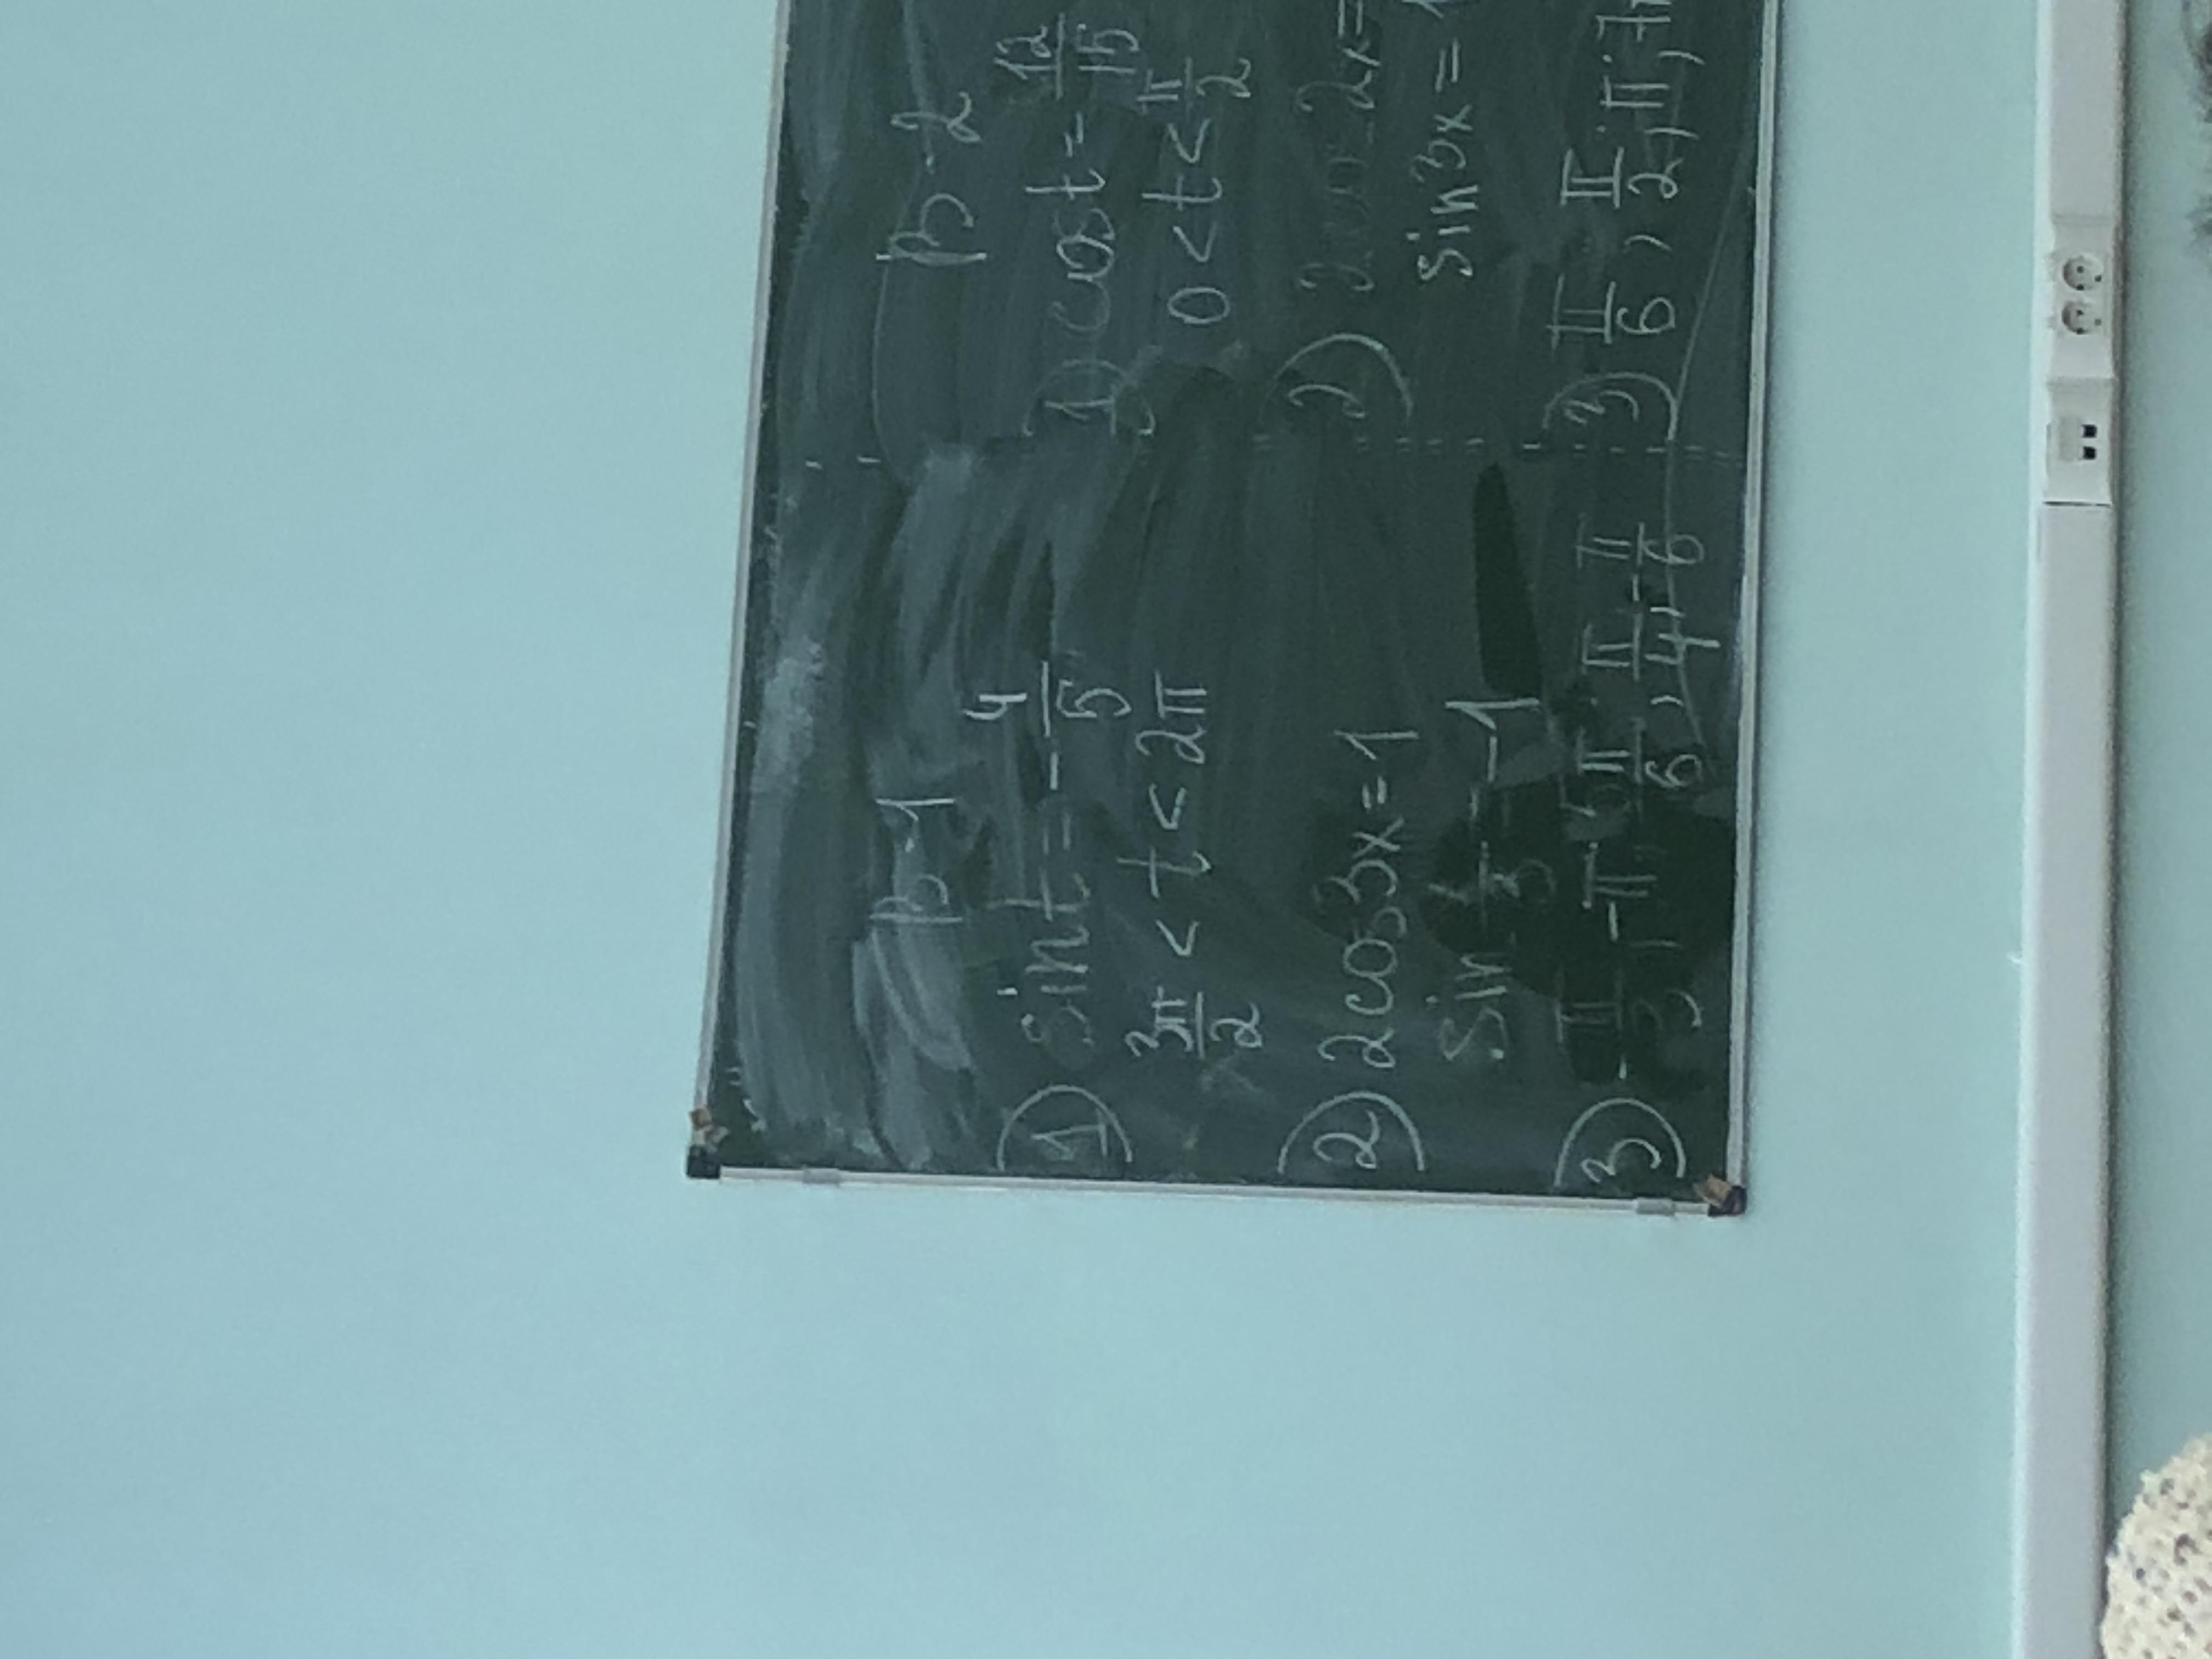 В-1
1) sin t = -4/5
3π/2 < t < 2π
2) 2cos3x=1
sin x/3 = -1
3) -π/3; -π; 5π/6; π/4; -π/6
В-2
1) cost = 12/15
0 < t < π/2
2) 2cos2x=
sin3x=
3) π/6; π/2; π;